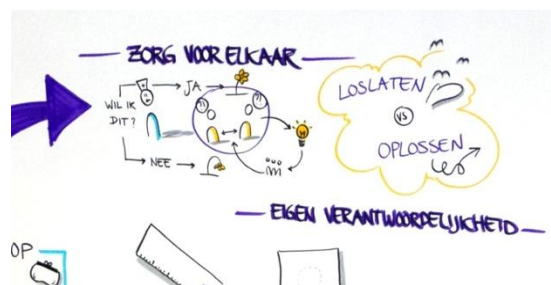 ZORG VOOR ELKAAR
WIL IK
DIT?
JA
NEE
LOSLATEN
VS
OPLOSSEN
EIGEN VERANTWOORDELIJKHEID
OP